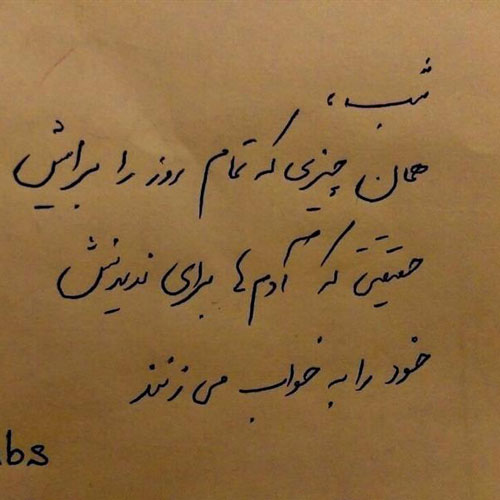 شب،
همان چیزی که تمام روز را برایش
حقیقتی که آدم‌ها برای ندیدنش
خود را به خواب می‌زنند
bs